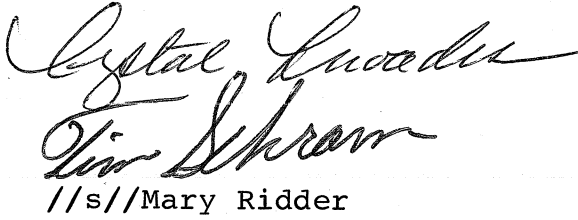 Crystal Rhoades
Tim Schram
//s//Mary Ridder